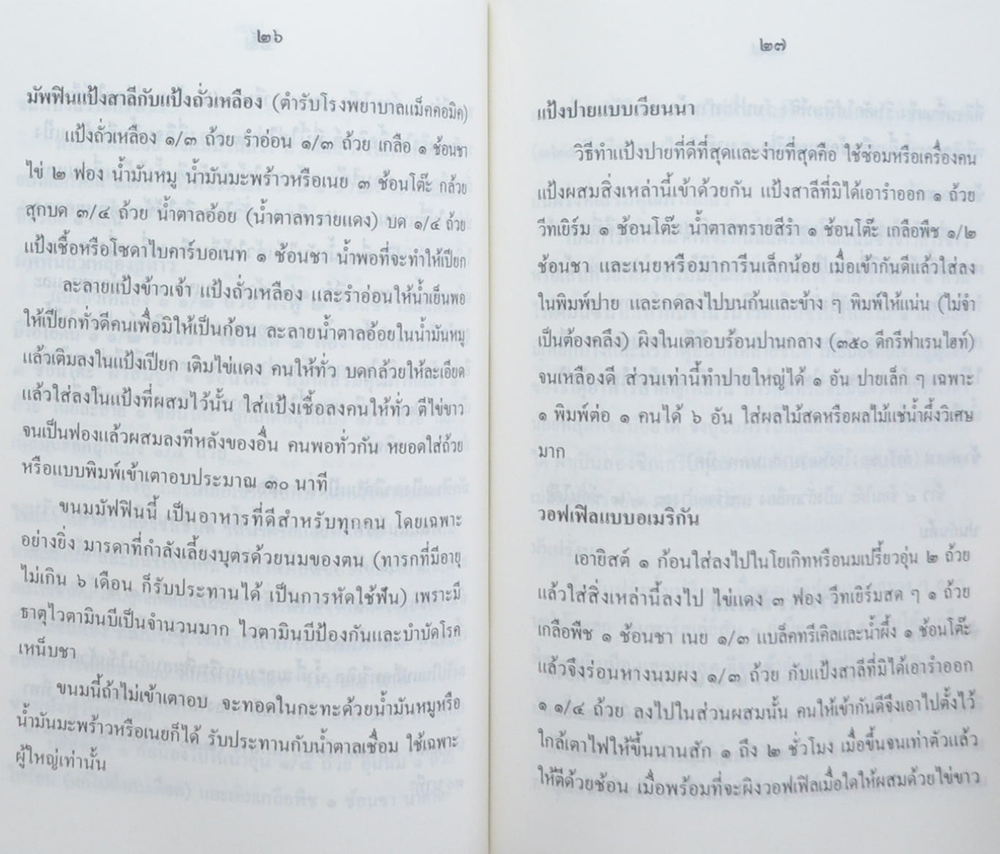 ๒๖
มัพฟินแป้งสาลีกับแป้งถั่วเหลือง (ตำรับโรงพยาบาลแม็คคอมิค)
แป้งถั่วเหลือง ๑/๓ ถ้วย รำอ่อน ๑/๓ ถ้วย เกลือ ๑ ช้อนชา
ไข่ ๒ ฟอง น้ำมันหมู น้ำมันมะพร้าวหรือเนย ๓ ช้อนโต๊ะ กล้วย
สุกบด ๓/๔ ถ้วย น้ำตาลอ้อย (น้ำตาลทรายแดง) บด ๑/๔ ถ้วย
แป้งเชื้อหรือโซดาไบคาร์บอเนท ๑ ช้อนชา น้ำพอที่จะทำให้เปียก
ละลายแป้งข้าวเจ้า แป้งถั่วเหลือง และรำอ่อนให้น้ำเย็นพอ
ให้เปียกทั่วดีคนเพื่อมิให้เป็นก้อน ละลายน้ำตาลอ้อยในน้ำมันหมู
แล้วเติมลงในแป้งเปียก เติมไข่แดง คนให้ทั่ว บดกล้วยให้ละเอียด
แล้วใส่ลงในแป้งที่ผสมไว้นั้น ใส่แป้งเชื้อลงคนให้ทั่ว ตีไข่ขาว
จนเป็นฟองแล้วผสมลงทีหลังของอื่น คนพอทั่วกัน หยอดใส่ถ้วย
หรือแบบพิมพ์เข้าเตาอบประมาณ ๓๐ นาที
ขนมมัฟฟินนี้ เป็นอาหารที่ดีสำหรับทุกคน โดยเฉพาะ
อย่างยิ่ง มารดาที่กำลังเลี้ยงบุตรด้วยนมของตน (ทารกที่มีอายุ
ไม่เกิน ๖ เดือน ก็รับประทานได้ เป็นการหัดใช้ฟัน) เพราะมี
ธาตุไวตามินบีเป็นจำนวนมาก ไวตามินบีป้องกันและบำบัดโรค
เหน็บชา
ขนมนี้ถ้าไม่เข้าเตาอบ จะทอดในกะทะด้วยน้ำมันหมูหรือ
น้ำมันมะพร้าวหรือเนยก็ได้ รับประทานกับน้ำตาลเชื่อม ใช้เฉพาะ
ผู้ใหญ่เท่านั้น
๒๗
แป้งปายแบบเวียนนา
วิธีทำแป้งปายที่ดีที่สุดและง่ายที่สุดคือ ใช้ซ่อมหรือเครื่องคน
แป้งผสมสิ่งเหล่านี้เข้าด้วยกัน แป้งสาลีที่มิได้เอารำออก ๑ ถ้วย
วีทเยิร์ม ๑ ช้อนโต๊ะ น้ำตาลทรายสีรำ ๑ ช้อนโต๊ะ เกลือพืช ๑/๒
ช้อนชา และเนยหรือมาการีนเล็กน้อย เมื่อเข้ากันดีแล้วใส่ลง
ในพิมพ์ปาย และกดลงไปบนก้นและข้าง ๆ พิมพ์ให้แน่น (ไม่จำ
เป็นต้องคลึง) ผิงในเตาอบร้อนปานกลาง (๓๕๐ ดีกรีฟาเรนไฮท์)
จนเหลืองดี ส่วนเท่านี้ทำปายใหญ่ได้ ๑ อัน ปายเล็ก ๆ เฉพาะ
๑ พิมพ์ต่อ ๑ คนได้ ๖ อัน ใส่ผลไม้สดหรือผลไม้แช่น้ำผึ้งวิเศษ
มาก
วอฟเฟิลแบบอเมริกัน
เอายิสต์ ๑ ก้อนใส่ลงไปในโยเกิทหรือนมเปรี้ยวอุ่น ๒ ถ้วย
แล้วใส่สิ่งเหล่านี้ลงไป ไข่แดง ๓ ฟอง วีทเยิร์มสด ๆ ๑ ถ้วย
เกลือพืช ๑ ช้อนชา เนย ๑/๓ แบล็คทรีเคิลและน้ำผึ้ง ๑ ช้อนโต๊ะ
แล้วจึงร่อนหางนมผง ๑/๓ ถ้วย กับแป้งสาลีที่มิได้เอารำออก
๑ ๑/๔ ถ้วย ลงไปในส่วนผสมนั้น คนให้เข้ากันดีจึงเอาไปตั้งไว้
ใกล้เตาไฟให้ขึ้นนานสัก ๑ ถึง ๒ ชั่วโมง เมื่อขึ้นจนเท่าตัวแล้ว
ให้ตีด้วยช้อน เมื่อพร้อมที่จะผิงวอฟเฟิลเมื่อใดให้ผสมด้วยไข่ขาว